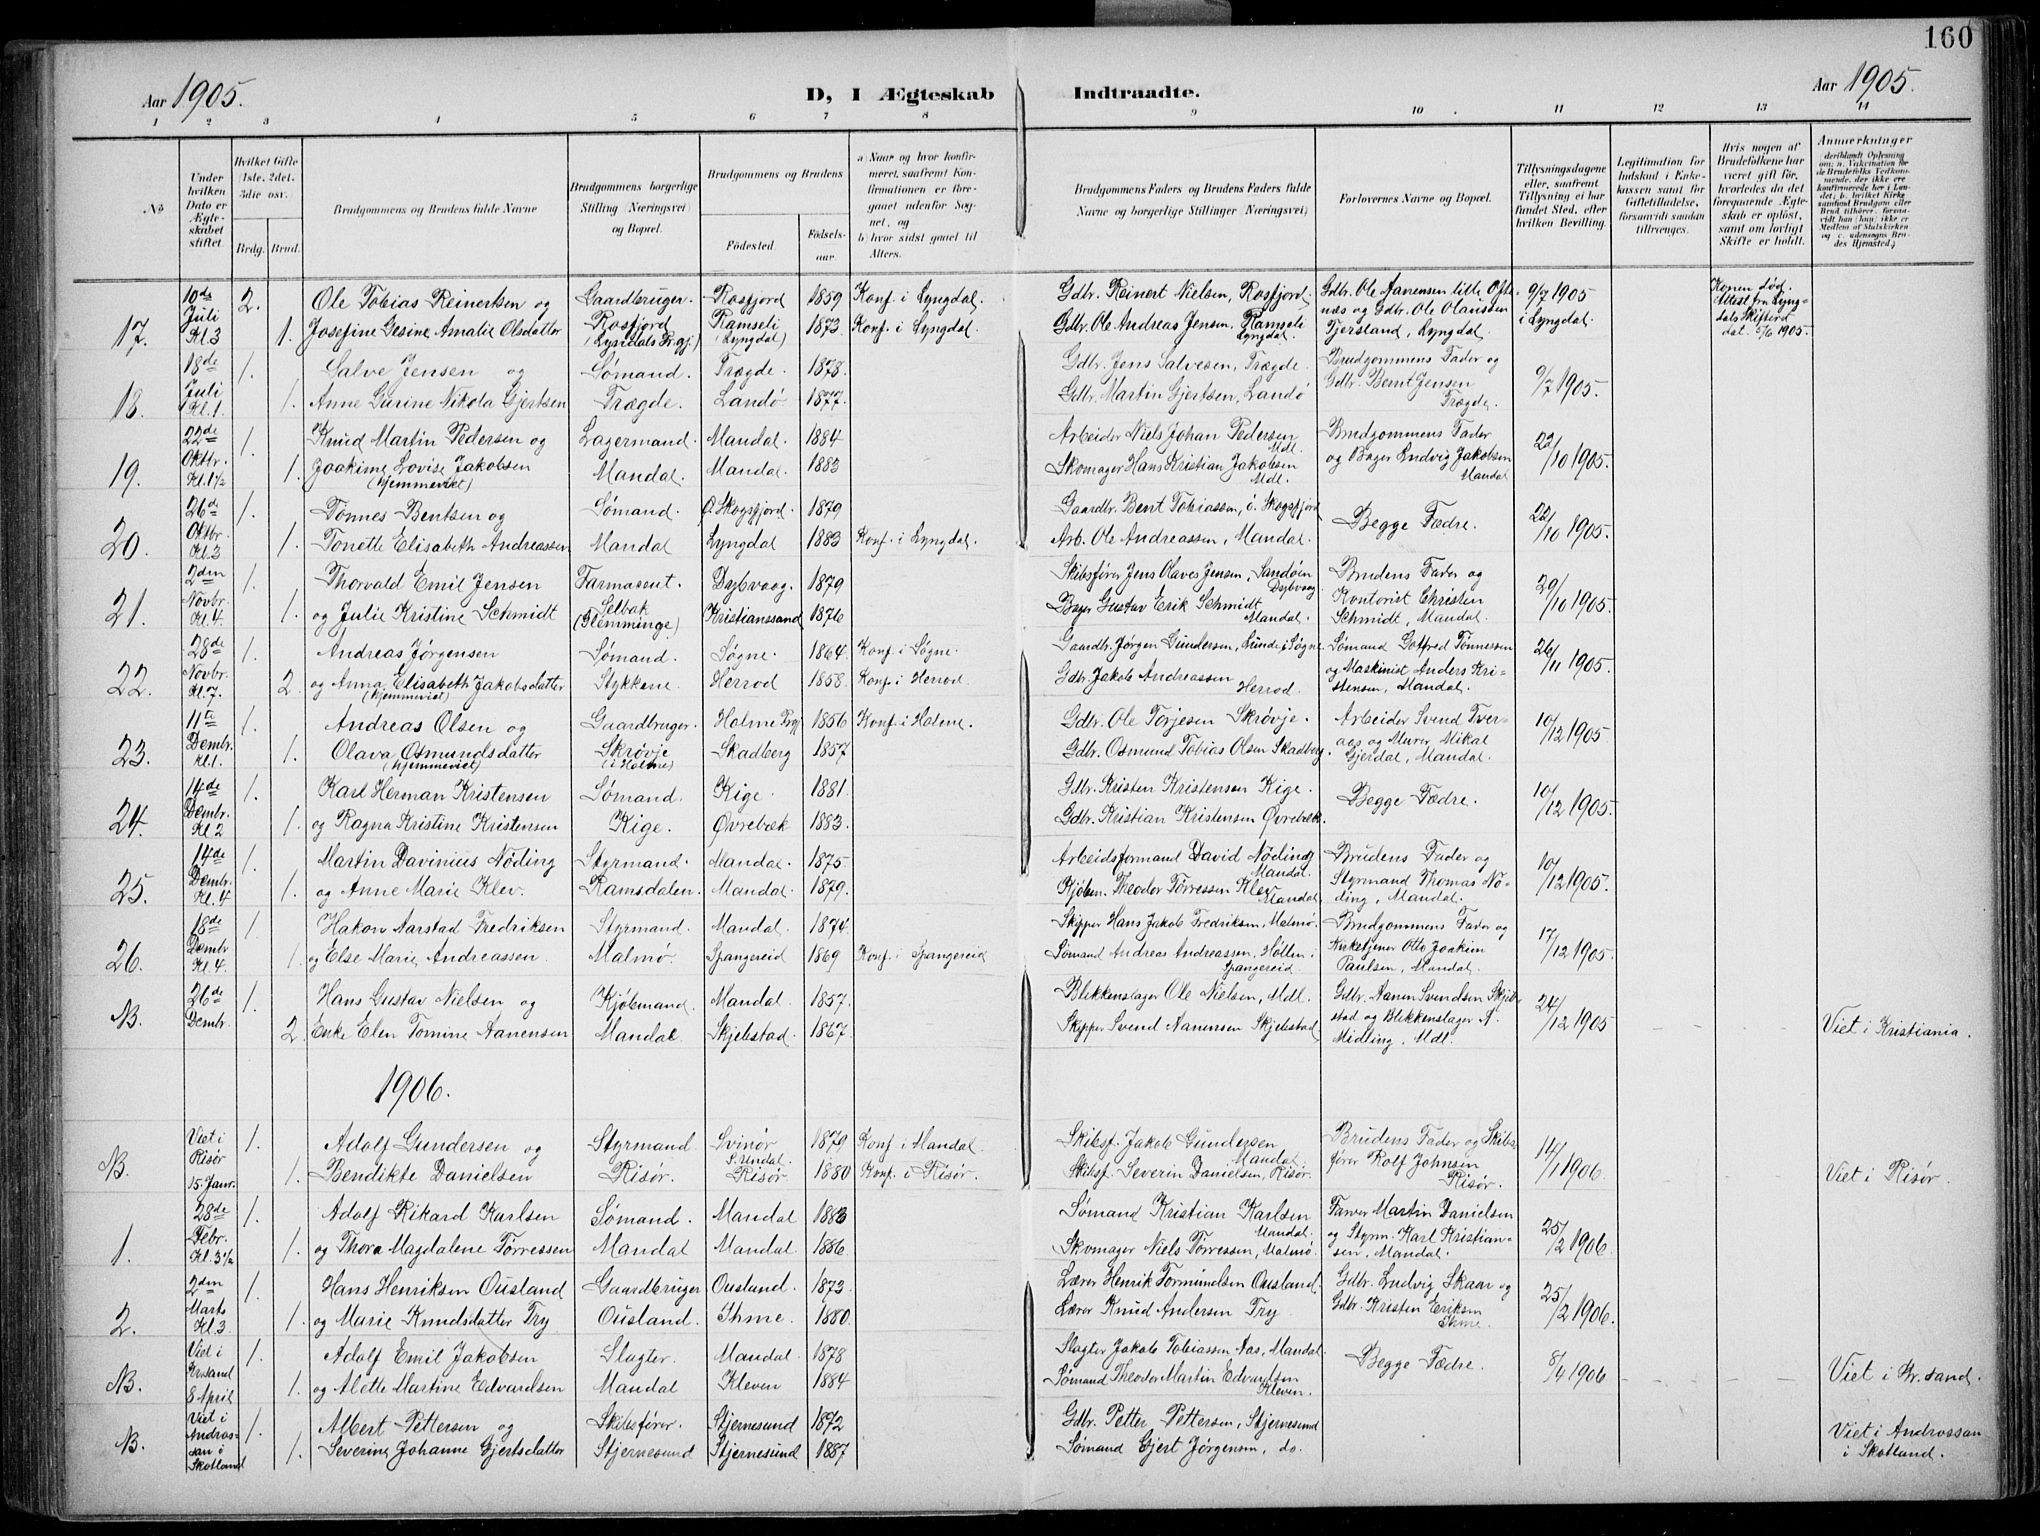 160
Aar 1905.
D, I Ægteskab Indtraadte.
Aar 1905.
1 2 3 4 5 6 7 8 9 10 11 12 13 14
No
Under hvilken Dato er Ægteskabet stiftet.
Hvilket Gifte (1ste, 2det, 3die osv.
Brdg. Brud.
Brudgommens og Brudens fulde Navne
Brudgommens borgerlige Stilling (Næringsvei) og Bopæl.
Brudgommens og Brudens
Fødested. Fødselsaar.
a) Naar og hvor konfirmeret, saafremt Konfirmationen er foregaaet udenfor Sognet, og
b) hvor sidst gaaet til Alters.
Brudgommens Faders og Brudens Faders fulde Navne og borgerlige Stillinger (Næringsvei)
Forlovernes Navne og Bopæl.
Tillysningsdagene eller, saafremt Tillysning ei har fundet Sted, efter hvilken Bevilling.
Legitimation for Indskud i Enkekassen samt for Giftetilladelse, forsaavidt saadan tiltrænges.
Hvis nogen af Brudefolkene har været gift før, hvorledes da det foregaaende Ægteskab er opløst, samt om lovligt Skifte er holdt.
Anmærkninger
17. 10de Juli Kl. 3 2. 1.
Ole Tobias Reinertsen og Gaardbruger Rosfjord 1859 Konf. i Lyngdal. Gdbr. Reinert Nielsen, Rosfjord. Gdbr. Ole Aanensen lille Oftenæs og Gdbr. Ole Olaussen 9/7 1905
Josefine Gesine Amalie Olsdatter Rosfjord (Lyngdals Prgj.) Ramseli (Lyngdal) 1873. Konf. i Lyngdal. Gdbr. Ole Andreas Jensen, Ramseli Lyngdal. Tjersland, Lyngdal. i Lyngdal. Konen død. Attest fra Lyngdals Skifteret dat. 5/6 1905.
18. 18de Juli Kl. 1. 1. 1.
Salve Jensen og Sømand. Trægde. 1878. Gdbr. Jens Salvesen, Trægde. Brudgommens Fader og
Anne Gurine Nikola Gjertsen Trægde. Landø 1877. Gdbr. Martin Gjertsen, Landø Gdbr. Bernt Jensen Trægde. 9/7 1905.
19. 22de Oktbr. Kl. 1½ 1. 1.
Knud Martin Pedersen og Lagermand. Mandal. 1884 Arbeider Niels Johan Pedersen Mdl. Brudgommens Fader
Joakime Lovise Jakobsen (hjemmeviet) Mandal. Mandal. 1883 Skomager Hans Kristian Jakobsen Mdl. og Bager Ludvig Jakobsen Mandal 22/10 1905.
20. 26de Oktbr. Kl. 3 1. 1.
Tønnes Bentsen og Sømand. Ø. Skogsfjord. 1879 Gaardbr. Bent Tobiassen, ø. Skogsfjord Begge Fædre. 22/10 1905.
Tonette Elisabeth Andreassen Mandal Lyngdal 1883 Konf. i Lyngdal. Arb. Ole Andreassen, Mandal.
21. 2den Novbr. Kl. 4. 1. 1.
Thorvald Emil Jensen Farmaceut. Dybvaag. 1879 Skibsfører Jens Olaves Jensen, Sandøen Dybvaag Brudens Fader og
og Julie Kristine Schmidt Selbak (Glemminge) Kristianssand 1876 Bager Gustav Erik Schmidt Mandal. Kontorist Christen Schmidt, Mandal. 29/10 1905.
22. 28de Novbr. Kl. 7. 1. 2.
Andreas Jørgensen Sømand. Søgne. 1864. Konf. i Søgne. Gaardbr. Jørgen Gundersen, Lunde i Søgne. Sømand Gotfred Tønnessen
og Anna Elisabeth Jakobsdatter (hjemmeviet) Stykkene. Herrod 1858. Konf. i Herrod. Gdbr. Jakob Andreassen Herrod. og Maskinist Anders Kristensen, Mandal. 26/11 1905.
23. 11te Dembr. Kl. 1. 1. 1.
Andreas Olsen og Gaardbruger. Holme Prgj 1856 Konf. i Holme. Gdbr. Ole Torjesen Skrøvje. Arbeider Svend Tveraas og Murer Mikal
Olava Osmundsdatter (hjemmeviet) Skrøvje (i Holme) Skadberg 1857 Gdbr. Osmund Tobias Olsen Skadberg. Gjerdal, Mandal. 10/12 1905.
24. 14de Dembr. Kl. 2 1. 1.
Karl Herman Kristensen Sømand. Kige. 1881 Gdbr. Kristen Kristensen Kige. Begge Fædre. 10/12 1905.
og Ragna Kristine Kristensen Kige. Øvrebæk 1883. Gdbr. Kristian Kristensen Øvrebæk.
25. 14de Dembr. Kl. 4 1. 1.
Martin Davinius Nøding Styrmand. Mandal. 1875 Arbeidsformand David Nøding Mandal. Brudens Fader og
og Anne Marie Klev. Ramsdalen. Mandal. 1879. Kjøbm. Theodor Tørressen Klev Mandal. Styrmand Thomas Nøding, Mandal. 10/12 1905.
26. 18de Dembr Kl. 4. 1. 1.
Hakon Aarstad Fredriksen Styrmand. Mandal. 1874. Skipper Hans Jakob Fredriksen, Malmø. Brudgommens Fader og
og Else Marie Andreassen. Malmø. Spangereid 1869 Konf. i Spangereid Sømand Andreas Andreassen, Høllen i Spangereid. Kirketjener Otto Joakim Paulsen, Mandal. 17/12 1905.
NB. 26de Dembr. 1. 2.
Hans Gustav Nielsen og Kjøbmand. Mandal. 1857. Blikkenslager Ole Nielsen, Mdl. Gdbr. Aanen Svendsen Skjebstad og Blikkenslager N.
Enke Elen Tomine Aanensen Mandal. Skjebstad. 1867. Skipper Svend Aanensen Skjebstad Midling, Mdl. 24/12 1905 Viet i Kristiania.
1906.
NB. Viet i Risør 15. Janr. 1. 1.
Adolf Gundersen og Styrmand Svinør S. Undal. 1879 Konf. i Mandal. Skibsf. Jakob Gundersen Mandal. Brudens Fader og Skibsfører Rolf Johnsen
Bendikte Danielsen Risør. Risør. 1880 Konf. i Risør. Skibsf. Severin Danielsen, Risør. Risør. 14/1 1906. Viet i Risør.
1. 28de Febr. Kl. 3½ 1. 1.
Adolf Rikard Karlsen Sømand. Mandal 1883 Sømand Kristian Karlsen Mandal. Farver Martin Danielsen
og Thora Magdalene Tørressen Mandal Mandal. 1886. Skomager Niels Tørressen, Malmø. og Styrm. Karl Kristiansen, Mandal. 25/2 1906.
2. 2den Marts Kl. 3. 1. 1.
Hans Henriksen Ousland Gaardbruger Ousland. 1873. Lærer Henrik Tormundsen Ousland. Gdbr. Ludvig Skaar og
og Marie Knudsdatter Try Ousland. Ihme. 1880. Lærer Knud Andersen Try. Gdbr. Kristen Eriksen Ihme. 25/2 1906.
NB. Viet i Krsand 8 April 1. 1.
Adolf Emil Jakobsen Slagter. Mandal. 1878 Slagter Jakob Tobiassen Aas, Mandal. Begge Fædre. 8/4 1906
og Alette Martine Edvardsen Mandal Kleven 1884 Sømand Theodor Martin Edvardsen Kleven. Viet i Kr.sand.
NB. Viet i Androssan i Skotland 1. 1.
Albert Pettersen og Skibsfører. Stjernesund 1872 Gdbr. Petter Pettersen, Stjernesund
Severine Johanne Gjertsdatter Stjernesund Stjernesund 1887 Sømand Gjert Jørgensen, do. Viet i Androssan i Skotland.